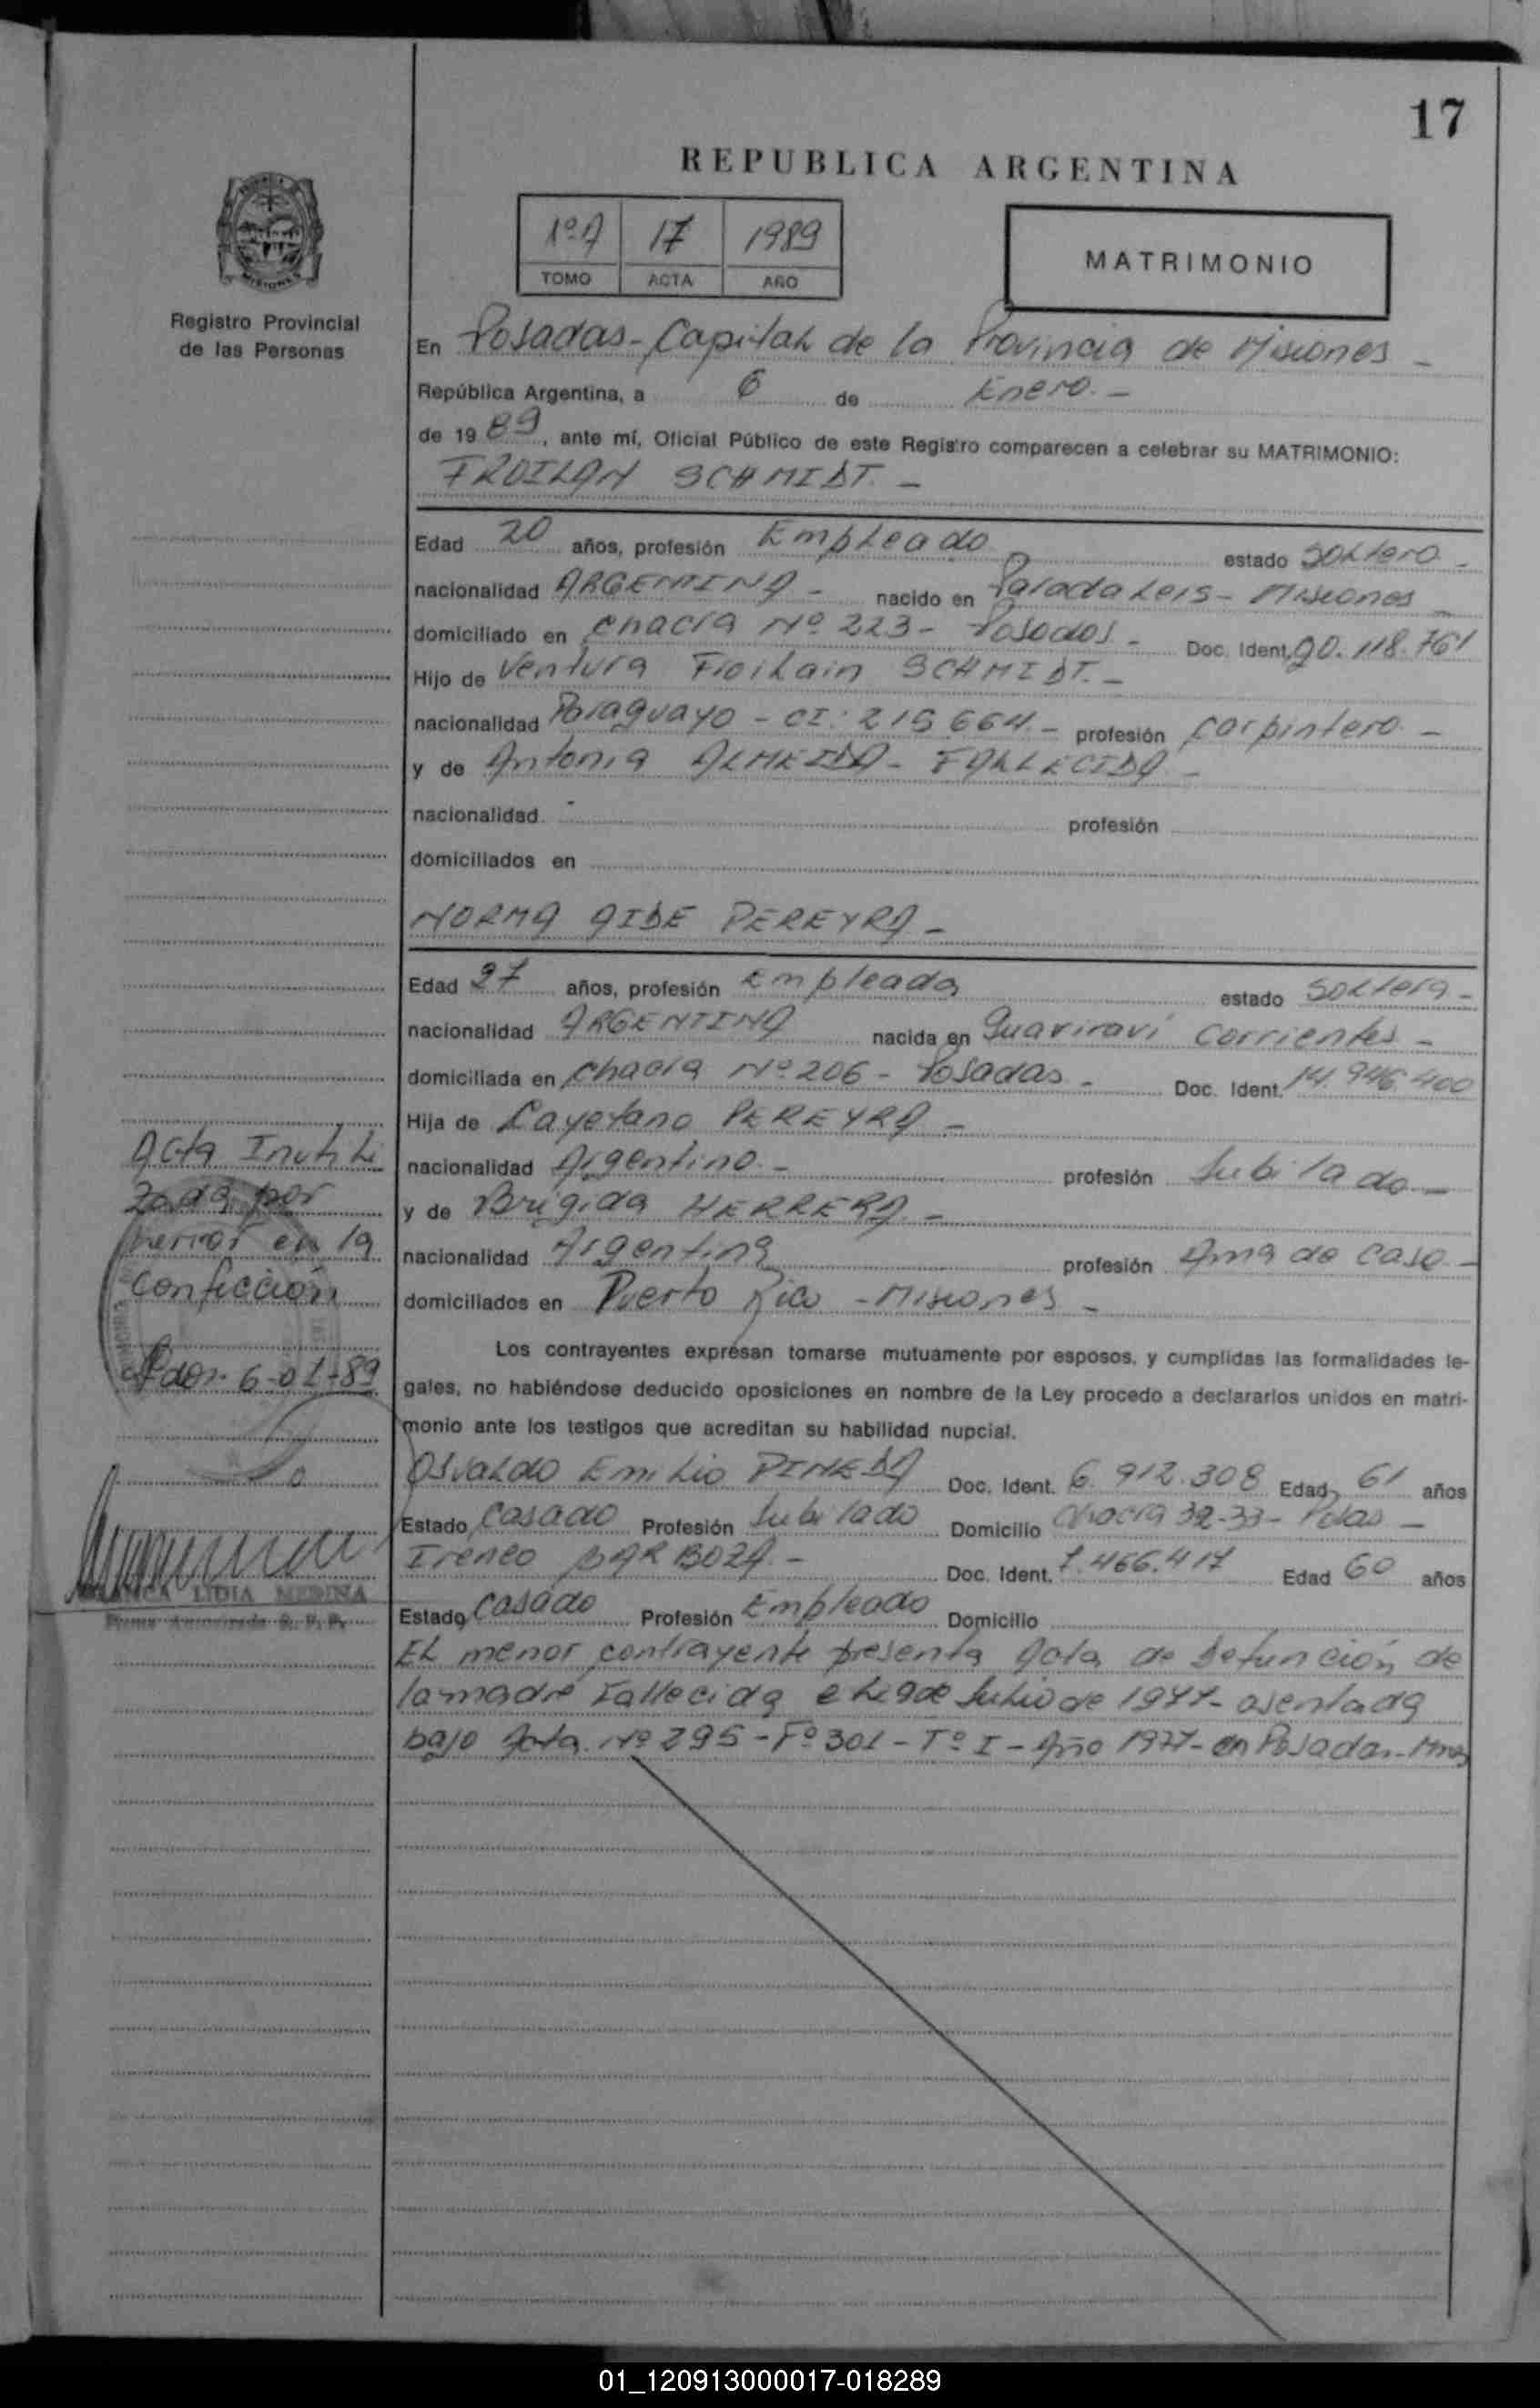 17
REPUBLICA ARGENTINA
1º A 17 1989
TOMO ACTA AÑO
MATRIMONIO
MISIONES
Registro Provincial
de las Personas
En Posadas - Capital de la Provincia de Misiones -
República Argentina, a 6 de Enero. -
de 19 89, ante mí, Oficial Público de este Registro comparecen a celebrar su MATRIMONIO:
FROILAN SCHMIDT. -
Edad 20 años, profesión Empleado estado Soltero -
nacionalidad ARGENTINA - nacido en Parada Leis - Misiones -
domiciliado en Chacra Nº 223 - Posadas - Doc. Ident. 20.118.761
Hijo de Ventura Froilain SCHMIDT. -
nacionalidad Paraguayo - CI: 215.664. - profesión Carpintero -
y de Antonia ALMEIDA - FALLECIDA -
nacionalidad profesión
domiciliados en
NORMA AIDE PEREYRA -
Edad 27 años, profesión Empleada estado Soltera -
nacionalidad ARGENTINA nacida en Guaviraví Corrientes -
domiciliada en Chacra Nº 206 - Posadas - Doc. Ident. 14.946.400
Hija de Cayetano PEREYRA -
nacionalidad Argentino - profesión Jubilado -
y de Brigida HERRERA -
nacionalidad Argentina profesión Ama de Casa -
domiciliados en Puerto Rico - Misiones -
Los contrayentes expresan tomarse mutuamente por esposos, y cumplidas las formalidades le-
gales, no habiéndose deducido oposiciones en nombre de la Ley procedo a declararlos unidos en matri-
monio ante los testigos que acreditan su habilidad nupcial.
Osvaldo Emilio PINEDA Doc. Ident. 6.912.308 Edad 61 años
Estado Casado Profesión Jubilado Domicilio Chacra 32-33 - Pdas -
Ireneo BARBOZA - Doc. Ident. 7.466.417 Edad 60 años
Estado Casado Profesión Empleado Domicilio
El menor contrayente presenta Acta de Defunción de
la madre Fallecida el de Julio de 1977 - asentada
bajo Acta Nº 295 - Fº 301 - Tº I - Año 1977 - en Posadas - Mnes
Acta Inutili
zada por
error en la
Confección
Pdas. 6-01-89
BLANCA LIDIA MEDINA
Firma Autorizada R. P. P.
01_120913000017-018289